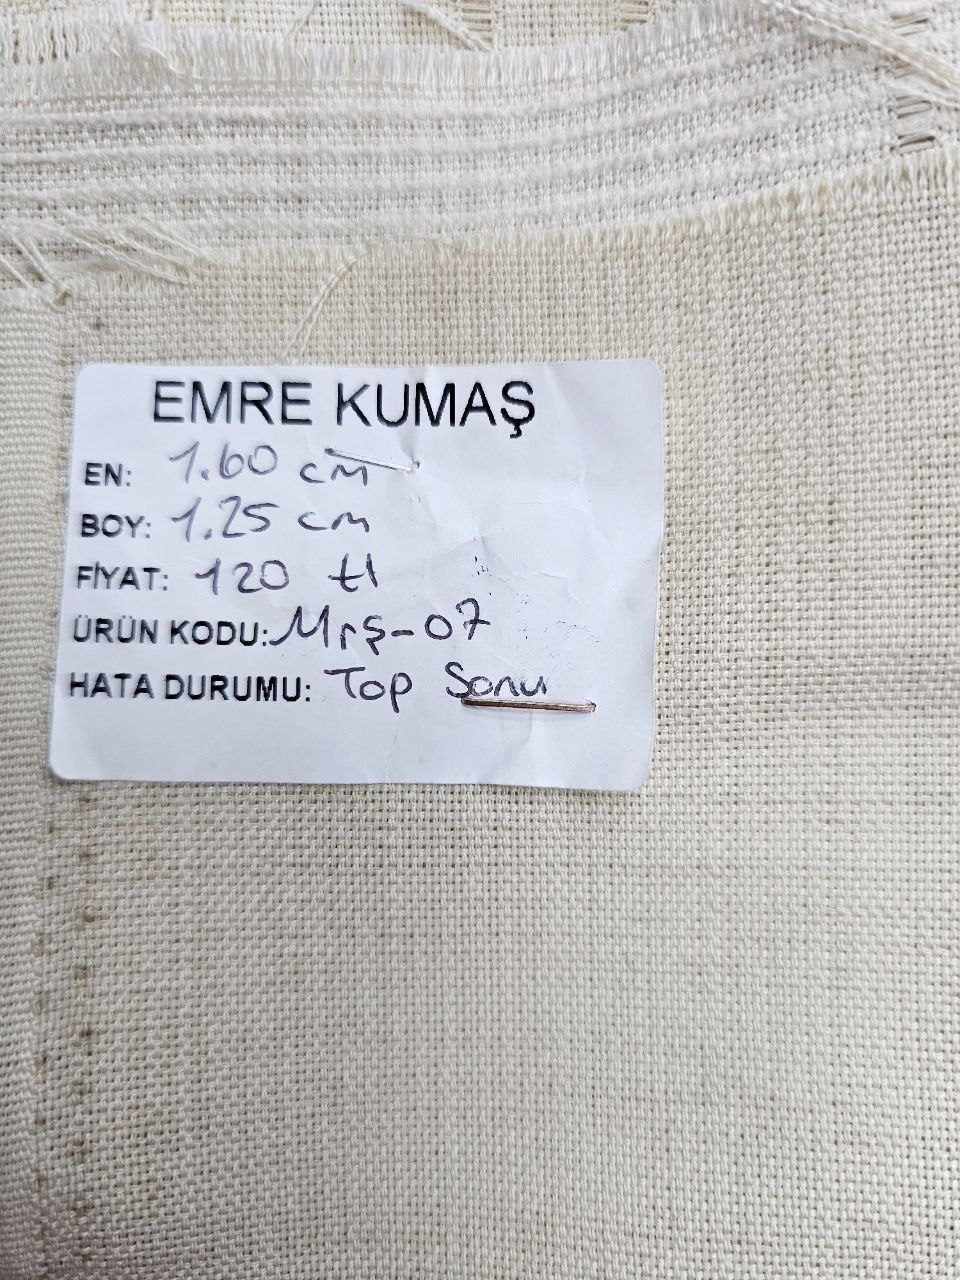 EMRE KUMAŞ
EN: 1.60 cm
BOY: 1.25 cm
FİYAT: 120 tl
ÜRÜN KODU: Mrş-07
HATA DURUMU: Top Sonu